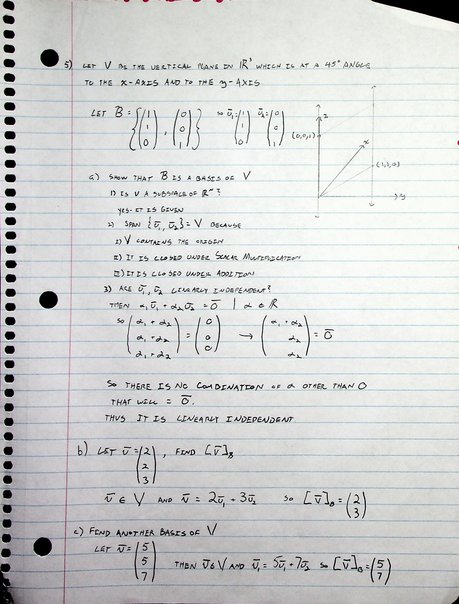 5) LET V BE THE VERTICAL PLANE IN ℝ³ WHICH IS AT A 45° ANGLE
TO THE x-AXIS AND TO THE y-AXIS
LET B = {(1 1 0), (0 0 1)} SO v̄₁ = (1 1 0) v̄₂ = (0 0 1)
z
(0,0,1)
x
(1,1,0)
y
a) SHOW THAT B IS A BASIS OF V
1) IS V A SUBSPACE OF ℝⁿ?
YES - IT IS GIVEN
2) SPAN {v̄₁, v̄₂} = V BECAUSE
I) V CONTAINS THE ORIGIN
II) IT IS CLOSED UNDER SCALAR MULTIPLICATION
III) IT IS CLOSED UNDER ADDITION
3) ARE v̄₁, v̄₂ LINEARLY INDEPENDENT?
THEN α₁v̄₁ + α₂v̄₂ = 0̄ | α ∈ ℝ
SO (α₁ + α₂ α₁ + α₂ α₁ + α₂) = (0 0 0) → (α₁ + α₂ α₂ α₂) = 0̄
SO THERE IS NO COMBINATION OF α OTHER THAN 0
THAT WILL = 0̄.
THUS IT IS LINEARLY INDEPENDENT.
b) LET v̄ = (2 2 3), FIND [v̄]B
v̄ ∈ V AND v̄ = 2v̄₁ + 3v̄₂ SO [v̄]B = (2 3)
c) FIND ANOTHER BASIS OF V
LET v̄ = (5 5 7) THEN v̄ ∈ V AND v̄₁ = 5v̄₁ + 7v̄₂ SO [v̄]B = (5 7)